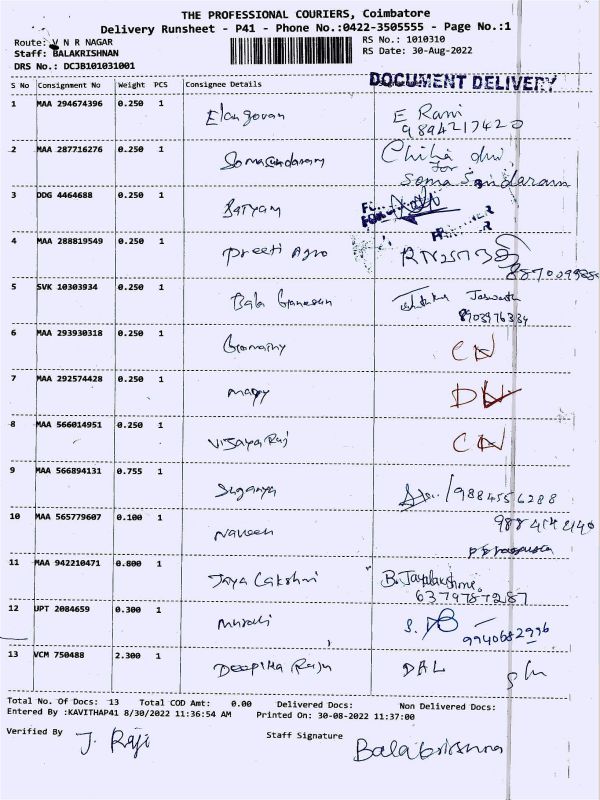 THE PROFESSIONAL COURIERS, Coimbatore
Delivery Runsheet - P41 - Phone No.:0422-3505555 - Page No.:1
Route: V N R NAGAR
RS No.: 1010310
Staff: BALAKRISHNAN
RS Date: 30-Aug-2022
DRS No.: DCJB101031001
DOCUMENT DELIVERY
S No Consignment No Weight PCS Consignee Details
1 MAA 294674396 0.250 1 Elangovan E Rani
9894217420
2 MAA 287716276 0.250 1 Somasundaram
for
Soma Sundaram
3 DDG 4464688 0.250 1
4 MAA 288819549 0.250 1 Preeti Agro
5 SVK 10303934 0.250 1 Bala Ganesan
8903976334
6 MAA 293930318 0.250 1 CN
7 MAA 292574428 0.250 1 DN
8 MAA 566014951 0.250 1 Vijaya Raj CN
9 MAA 566894131 0.755 1 Suganya 9884556288
10 MAA 565779607 0.100 1 Naveen
11 MAA 942210471 0.800 1 Jaya Lakshmi B. Jayalakshmi
6379787287
12 UPT 2084659 0.300 1 Murali
9940682996
13 VCM 750488 2.300 1 Deepika Raju
Total No. Of Docs: 13 Total COD Amt: 0.00 Delivered Docs: Non Delivered Docs:
Entered By :KAVITHAP41 8/30/2022 11:36:54 AM Printed On: 30-08-2022 11:37:00
Verified By J. Raji Staff Signature Balakrishnan